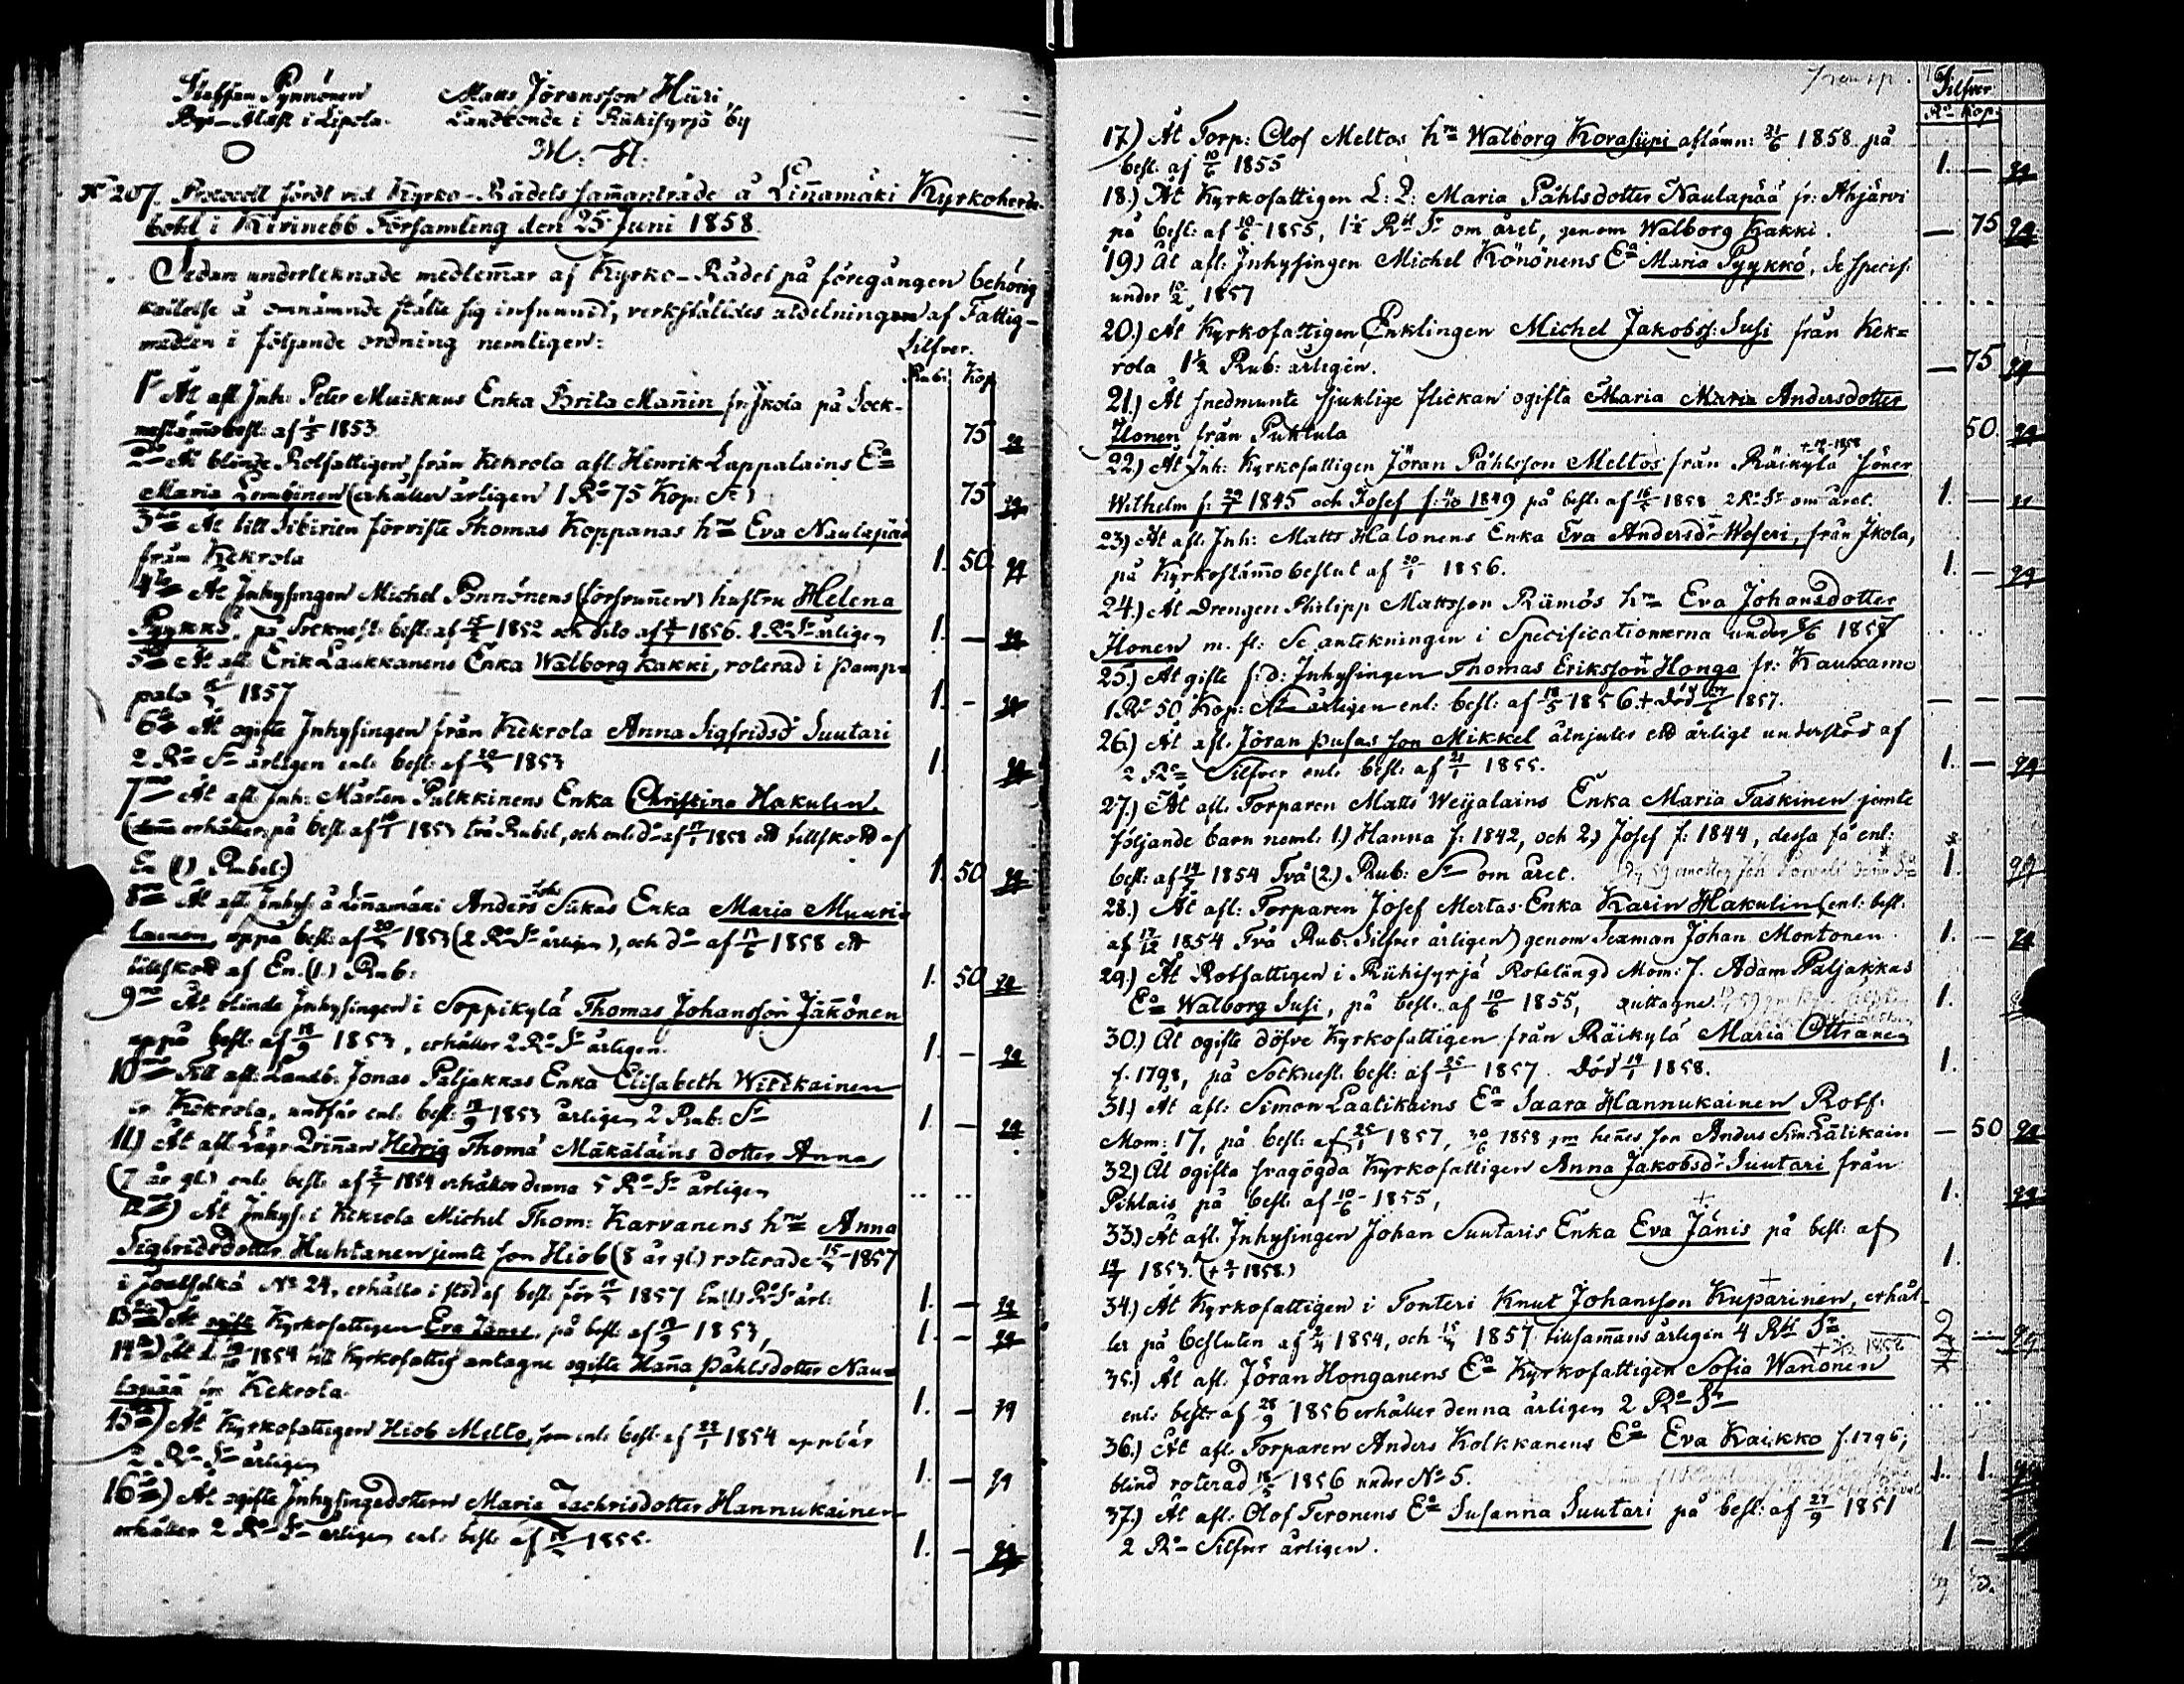 Staffan Pynnönen Matts Jöransson Hüri
By-Äldst i Lipola. Landbonde i Rükisyrjä by
M: N:
No 207. Protocoll fördt vid Kyrko-Rådets sam̄anträde å Lin̄amäki Kyrkoherde-
bohl i Kivinebb Församling den 25 Juni 1858.
Sedan undertecknade medlem̄ar af Kyrko-Rådet på föregången behörig
kallelse å omnämnde ställe sig infunnit, verkställdes utdelningen af Fattig-
medlen i följande ordning nemligen:
Silfver.
Rub: Kop
1o Åt afl. Inh: Peter Muikkus Enka Brita Man̄in fr. Ikola på Sock-
nestäm̄obesl: af 1/5 1853. 75
2o Åt blinde Rotfattigen från Kekrola afl. Henrik Lappalains Ea
Maria Lembinen (erhåller årligen 1 Ro 75 Kop: Sr) 75
3tio Åt till Sibirien förviste Thomas Koppanas hru Eva Naulapää
från Kekrola 1. 50
4to Åt Inhysingen Michel Ponnönens (försvunnen) hustru Helena
Pyykkö, på Socknest: besl: af 1852 och dito af 1856. 2 Ro Sr årligen 1. —
5to Åt afl. Erik Laukkanens Enka Walborg Kakki, roterad i Pamp-
pala 15/5 1857 1. -
6to Åt ogifta Inhysingen från Kekrola Anna Sigfridsdr Suutari
2 Ro Sr årligen enl. besl: af 1853 1.
7mo Åt afl. Inh: Mårten Pulkkinens Enka Christina Hakulin
(denna erhåller på besl: af 1853 två Rubel, och enl. do af 1858 ett tillskott af
En (1) Rubel.) 1. 50
8vo Åt afl. Inhys: å Lin̄amäki Anders Joh: Sükas Enka Maria Muuri-
lainen, uppå besl: af 1853 (2 Ro Sr årligen), och do af 1858 ett
tillskott af En (1.) Rub: 1. 50
9no Åt blinde Inhysingen i Soppikylä Thomas Johansson Jäkönen
uppå besl: af 18/9 1853, erhåller 2 Ro Sr årligen. 1. —
10mo Till afl. Landb: Jonas Paljakkas Enka Elisabeth Witikainen
fr Kekrola, undfår enl. besl: 18/9 1853 årligen 2 Rub: Sr 1. —
11.) Åt afl. Lägr Qvinnan Hedvig Thomä Mäkäläins dotter Anna
(7 år gl.) enl. besl: af 1854 erhåller denna 5 Ro Sr årligen .. ..
12mo) Åt Inhys: i Kekrola Michel Thom: Karvanens hru Anna
Sigfridsdotter Huhtanen jemte son Hiob (8 år gl.) roterade 15/5 1857
i Joutselkä No 24, erhålla i stöd af besl: för 1857 En (1.) Ro Sr årl. 1. —
13o) Åt ogifta Kyrkofattigen Eva Jänes, på besl: af 18/9 1853, 1. -
14o) Åt d. 1854 till Kyrkofattig antagne ogifta Hanna Påhlsdotter Nau-
lapää fr Kekrola. 1. —
15o) Åt Kyrkofattigen Hiob Melto, som enl. besl: af 1854 uppbär
2 Ro Sr årligen 1. —
16o) Åt ogifta Inhysingedottern Maria Zachrisdotter Hannukainen
erhåller 2 Ro Sr årligen enl. besl: af 1855. 1. —
Transp. Silfver
Ro Kop:
17.) Åt Torp: Olof Meltos hru Walborg Korasüpi aflämn: 21/6 1858 på
besl: af 10/6 1855 1. —
18.) Åt Kyrkofattigen L: Q: Maria Påhlsdotter Naulapää fr: Ahjärvi
på besl: af 10/6 1855, 1½ Rbl Sr om året, genom Walborg Kakki. — 75
19) Åt afl. Inhysingen Michel Könönens Ea Maria Pyykkö, se specif:
under 10/2 1857 .. ..
20.) Åt Kyrkofattigen Enklingen Michel Jakobss: Susi från Kek-
rola 1½ Rub: årligen. — 75
21.) Åt snedmunte sjuklige flickan ogifta Maria Maria Andersdotter
Ilonen från Puktula 50.
22.) Åt Inh: Kyrkofattigen Jöran Påhlsson Meltos från Räikylä söner
Wilhelm f: 1845 och Josef f: 1849 på besl: af 1858 2 Ro Sr om året. 1. —
23.) Åt afl. Inh: Matts Halonens Enka Eva Andersdr Weseri, från Ikola,
på Kyrkostäm̄obeslut af 20/1 1856. 1. —
24.) Åt Drengen Philipp Mattsson Rämös hru Eva Johansdotter
Ilonen m. fl: Se antekningen i Specificationerna under 8/6 1857 .. ..
25.) Åt gifte f: d: Inhysingen Thomas Eriksson Honga fr: Kauxamo
1 Ro 50 Kop: Sr årligen enl: besl: af 18/5 1856. + död 1857. — —
26.) Åt afl. Jöran Pusas son Mikkel åtnjuter ett årligt understöd af
2 Ro Silfver enl. besl: af 21/1 1855. 1. —
27.) Åt afl. Torparen Matts Weijalains Enka Maria Taskinen jemte
följande barn neml. 1.) Hanna f: 1842, och 2.) Josef f: 1844, dessa få enl:
besl: af 1854 Två (2.) Rub: Sr om året. 1.
28.) Åt afl: Torparen Josef Mertas Enka Karin Hakulin (enl: besl:
af 17/12 1854 Två Rub: Silfver årligen) genom Sexman Johan Montonen 1. —
29.) Åt Rotfattigen i Rühisyrjä Rotelängd Mom: 7. Adam Paljakkas
Ea Walborg Susi, på besl: af 10/6 1855, 1.
30.) Åt ogifte döfve Kyrkofattigen från Räikylä Maria Ottranen
f. 1798, på Socknest. besl: af 25/1 1857. död 19/1 1858. 1.
31.) Åt afl: Simon Laatikains Ea Saara Hannukainen Rotf.
Mom: 17, på besl: af 25/1 1857, 30/6 1858 gm hen̄es son Anders Sim: Latikain — 50
32) Åt ogifta svagögda Kyrkofattigen Anna Jakobsdr Suutari från
Pihlais på besl: af 10/6 1855, 1.
33.) Åt afl. Inhysingen Johan Suutaris Enka Eva Jänis på besl: af
1853. (+ 1858.) 1.
34.) Åt Kyrkofattigen i Tonteri Knut Johansson Kuparinen, erhål-
ler på besluten af 1854, och 1857 tillsam̄ans årligen 4 Rbl Sr 2 ..
35.) Åt afl. Jöran Honganens Ea Kyrkofattigen Sofia Wanonen
enl. besl: af 28/9 1856 erhåller denna årligen 2 Ro Sr .. ..
36.) Åt afl. Torparen Anders Kolkkanens Ea Eva Kaikko f. 1796;
blind roterad 18/5 1856 under No 5. 1. 1.
37.) Åt afl. Olof Teronens Ea Susanna Suutari på besl: af 27/9 1851
2 Ro Silfver årligen. 1 —